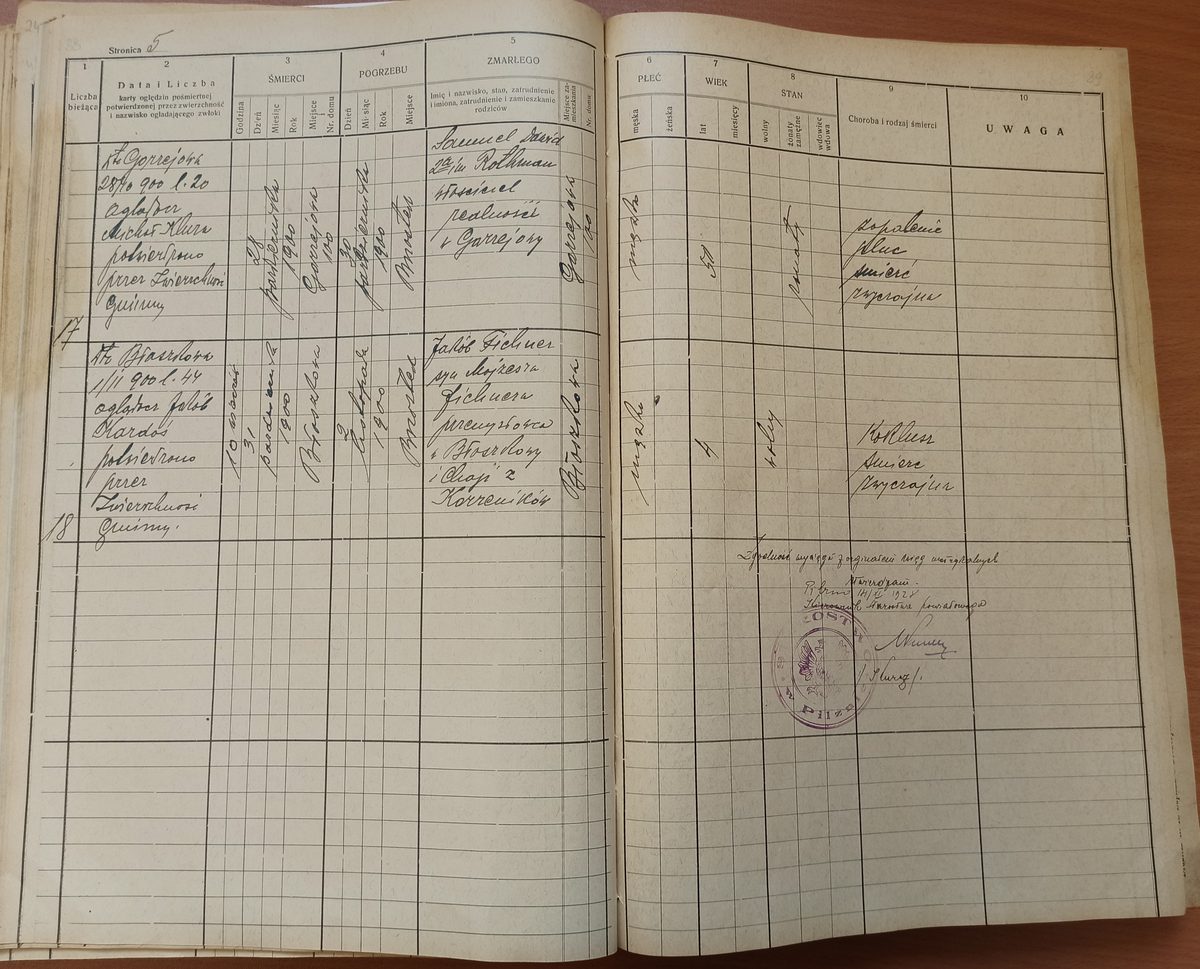 Stronica 5
1
Liczba bieżąca
2
Data i Liczba
karty oględzin pośmiertnej
potwierdzonej przez zwierzchność
i nazwisko oglądającego zwłoki
3
ŚMIERCI
Godzina
Dzień
Miesiąc
Rok
Miejsce
Nr. domu
4
POGRZEBU
Dzień
Miesiąc
Rok
Miejsce
5
ZMARŁEGO
Imię i nazwisko, stan, zatrudnienie
i imiona, zatrudnienie i zamieszkanie
rodziców
Miejsce zamieszkania
Nr. domu
6
PŁEĆ
męska
żeńska
7
WIEK
lat
miesięcy
8
STAN
wolny
żonaty
zamężna
wdowiec
wdowa
9
Choroba i rodzaj śmierci
10
UWAGA
17
Gorzejowa
28/10 900 l. 20
oglądacz
Michał Klura
potwierdzono
przez Zwierzchność
Gminną
28
października
1900
Gorzejowa
100
30
października
1900
Brostek
Samuel Dawid
2ga im Rothman
właściciel
realność
w Gorzejowy
Gorzejowa
100
męska
51
żonaty
zapalenie
płuc
śmierć
zwyczajna
18
Błaszkowa
1/11 900 l. 44
oglądacz Jakób
Kardaś
potwierdzono
przez
Zwierzchność
Gminną.
10
31
października
1900
Błaszkowa
2
listopada
1900
Brostek
Jakób Fichner
syn Mojżesza
Fichnera
przemysłowca
w Błaszkowy
i Chaji z
Korzeników
Błaszkowa
męska
4
wolny
Koklusz
śmierć
zwyczajna
Zgodność wyciągu z orginałem ksiąg metrykalnych
stwierdzam.
Pilzno 1928
Kierownik Starostwa powiatowego
Pilzn